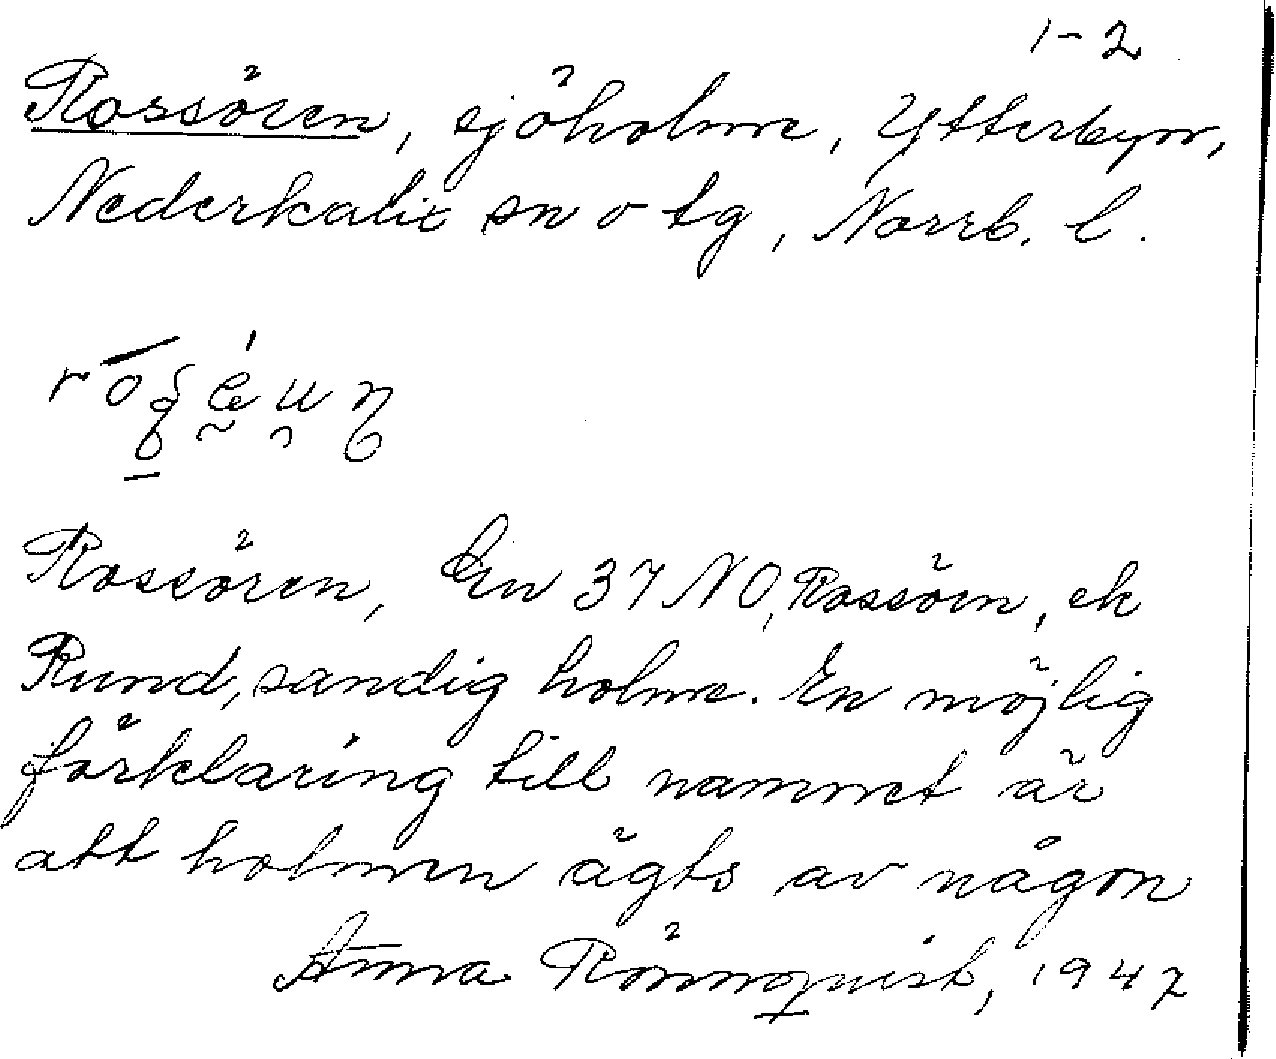 1-2
Rossören, sjöholme, Ytterbyn,
Nederkalix sn o tg, Norrb. l.
Rossören, En 37 NO, Rossörn, ek
Rund, sandig holme. En möjlig
förklaring till namnet är
att holmen ägts av någon
Anna Rönnqvist, 1947